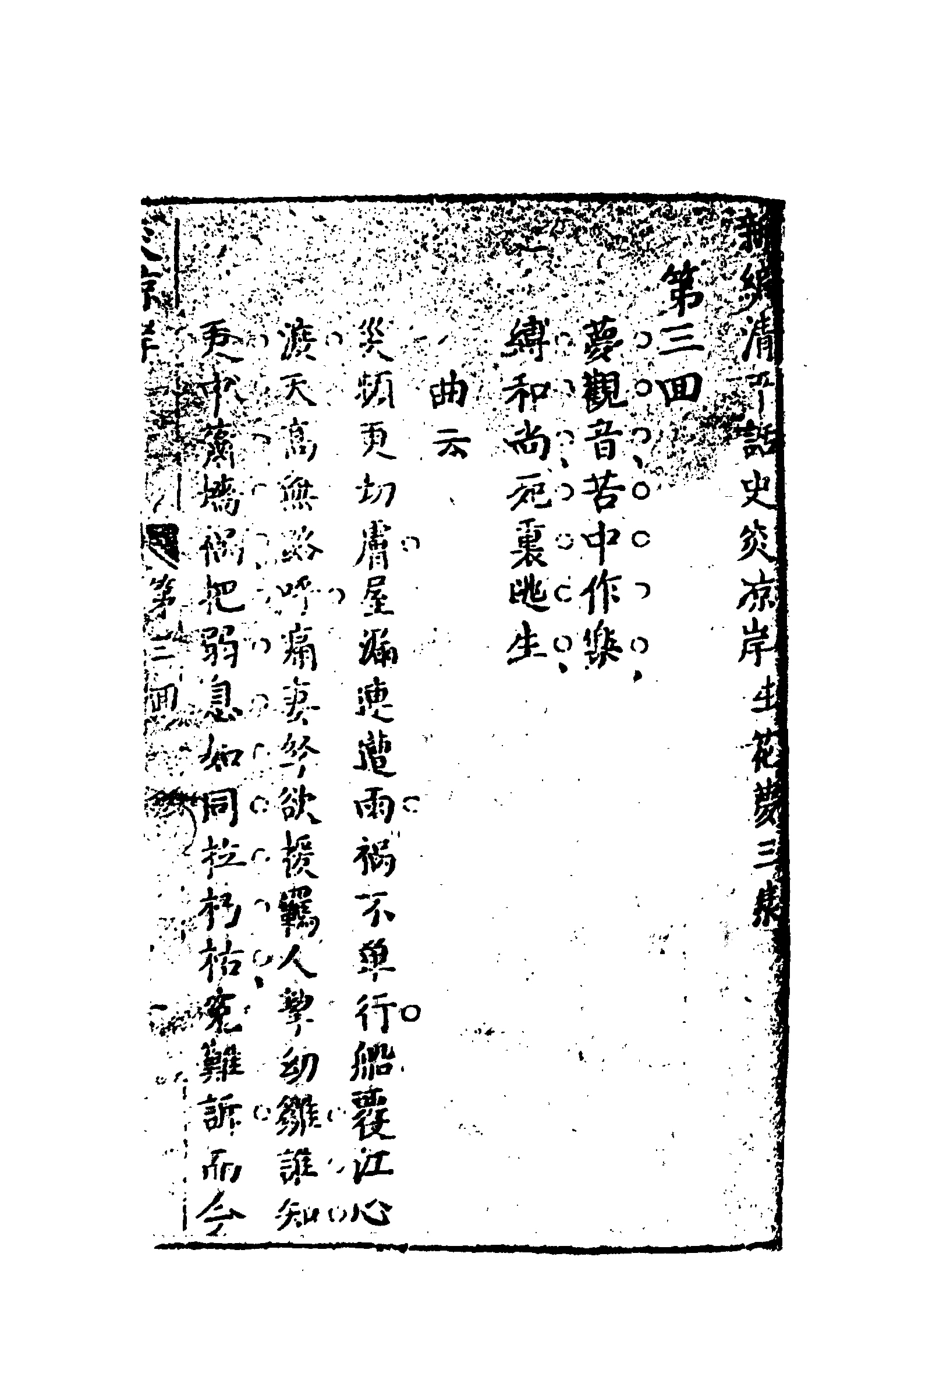 新編清平話史炎凉岸生花夢三集
第三回
夢觀音苦中作樂
縛和尚死裏逃生
曲云
災頻更切膚屋漏連遭雨禍不單行船覆江心
渡天高無路呼痛妻拏欲援羈人擊幼雛誰知
更中簫墻禍把弱息如同拉朽枯寃難訴而今
炎凉岸
第三回
一